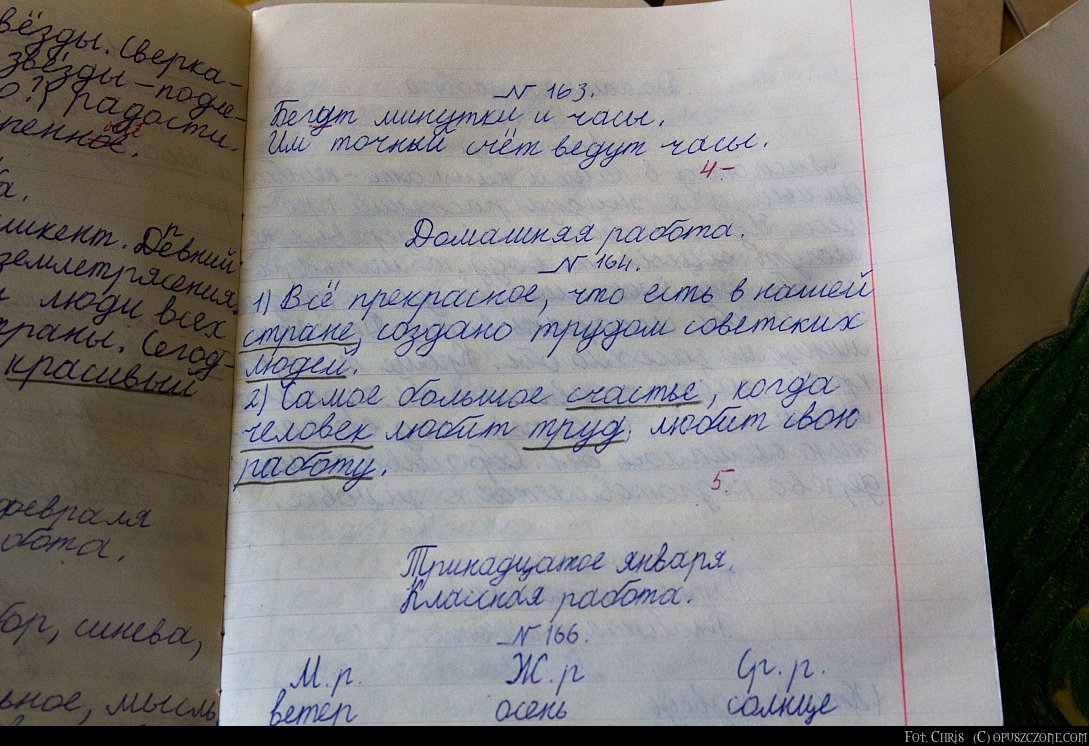 звёзды. Сверка-
звёзды - подле-
радости.
ликент. Девний
землетрясения
люди всех
страны. Сегод-
красивый
февраля
работа.
бор, синева,
мысль
№ 163.
Бегут минутки и часы.
Им точный счёт ведут часы.
4-
Домашняя работа.
№ 164.
1) Всё прекрасное, что есть в нашей
стране, создано трудом советских
людей.
2) Самое большое счастье, когда
человек любит труд, любит свою
работу.
5.
Тринадцатое января.
Классная работа.
№ 166.
М.р. Ж.р Ср.р.
ветер осень солнце
Fot. Chris (C) opuszczone.com